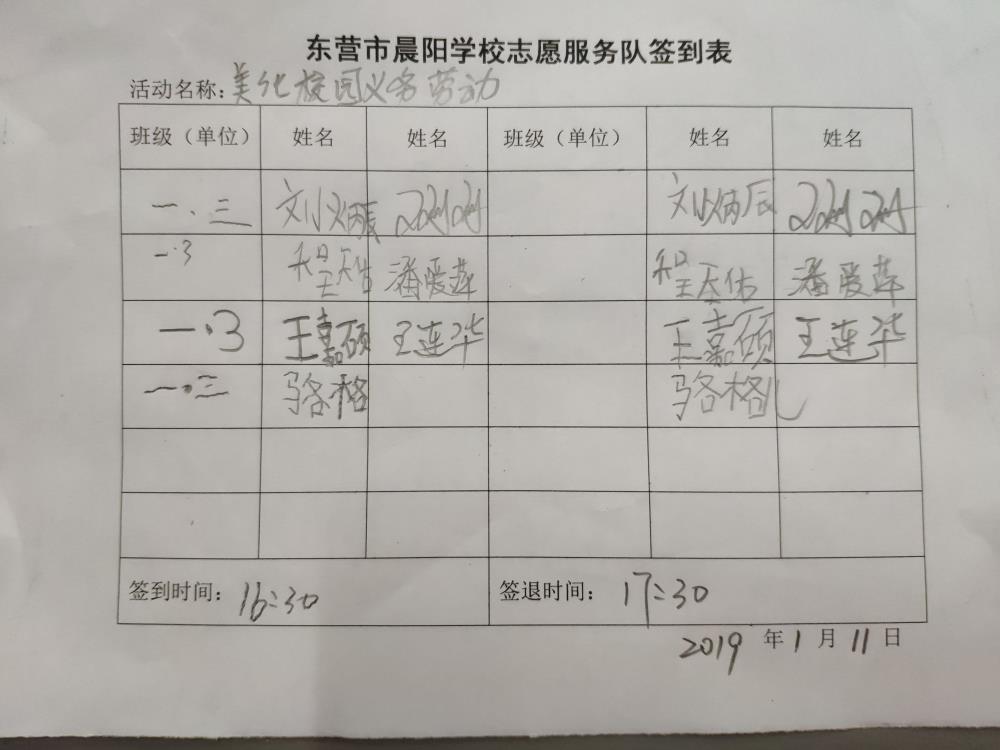 东营市晨阳学校志愿服务队签到表
活动名称：美化校园义务劳动
班级（单位） 姓名 姓名 班级（单位） 姓名 姓名
一、三 刘火炳辰 刘火炳辰
一·3 程天佑 潘爱莲 程天佑 潘爱莲
一·3 王嘉硕 王连华 王嘉硕 王连华
一·三 骆格 骆格
签到时间：16:30 签退时间：17:30
2019 年 1 月 11 日